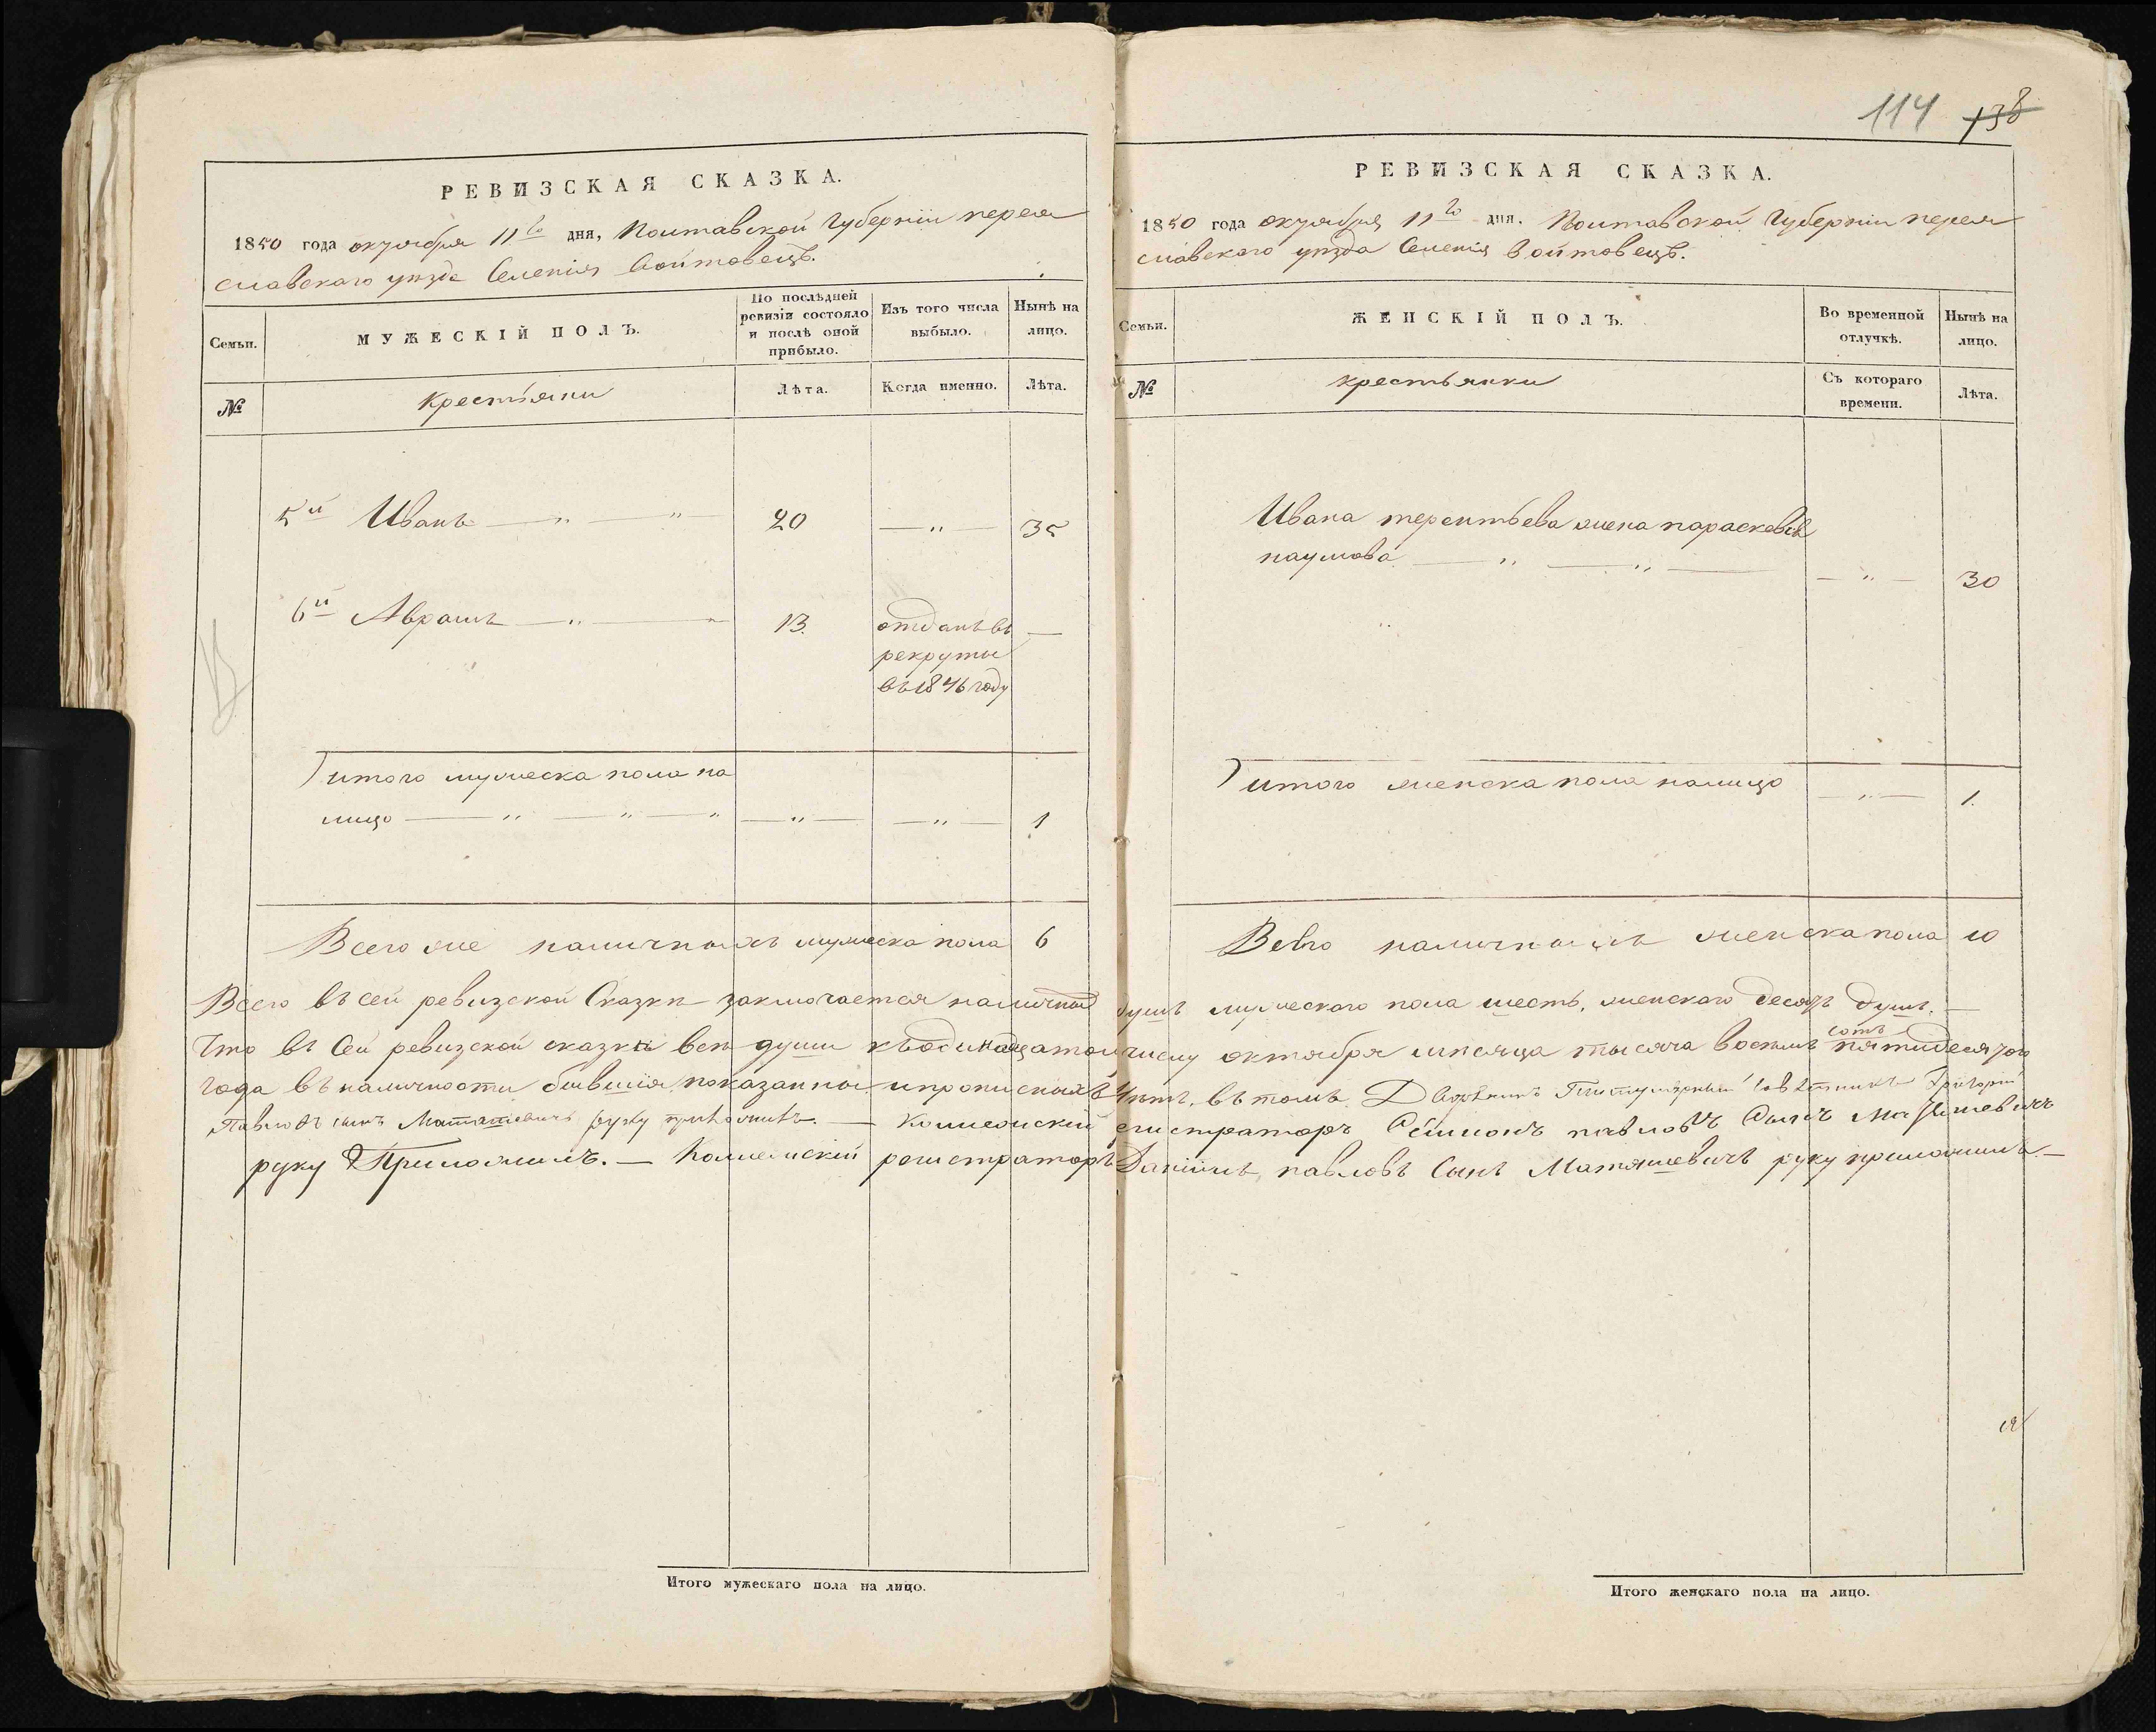 114 138
РЕВИЗСКАЯ СКАЗКА.
1850 года октября 11го дня, Полтавской Губерніи перея
славскаго уѣзда Селенія Войтовецъ.
Семьи.
МУЖЕСКІЙ ПОЛЪ.
По послѣдней
ревизіи состояло
и послѣ оной
прибыло.
Изъ того числа
выбыло.
Нынѣ на
лицо.
№
крестьяни
Лѣта.
Когда именно.
Лѣта.
5й Иванъ — „ — „ 20 — „ — 35
6й Аврамъ — „ — 13. отданъ въ —
рекруты
въ 1846 году
итого мужеска пола на
лицо — „ — „ — „ — „ — — „ — 1
Всего же наличныхъ мужеска пола 6
РЕВИЗСКАЯ СКАЗКА.
1850 года октября 11го дня. Полтавской Губерніи перея
славскаго уѣзда Селенія Войтовецъ.
Семьи.
ЖЕНСКІЙ ПОЛЪ.
Во временной
отлучкѣ.
Нынѣ на
лицо.
№
крестьянки
Съ котораго
времени.
Лѣта.
Ивана терентьева жена параскевія
наумова — „ — „ — — „ — 30
итого женска пола налицо — „ — 1.
Всего наличныхъ женска пола 10
Всего въ сей ревизской Сказки заключается наличных душъ мужескаго пола шесть, женскаго десять душъ. —
Что въ Сей ревизской сказки всѣ души къ одинадцатому числу октября мѣсяца тысяча восемь сотъ пятидесятого
года въ наличности бывшія показанны и прописныхъ нѣтъ, въ томъ Дворянинъ Титулярный совѣтникъ Григорій
Павловъ сынъ Маташевичъ руку приложилъ. — Колежскій егистраторъ Семионъ павловъ Сынъ Маташевичъ
руку Приложилъ. — Колежскій регистраторъ Даніилъ павловъ Сынъ Маташевичъ руку приложилъ. —
Итого мужескаго пола на лицо.
Итого женскаго пола на лицо.